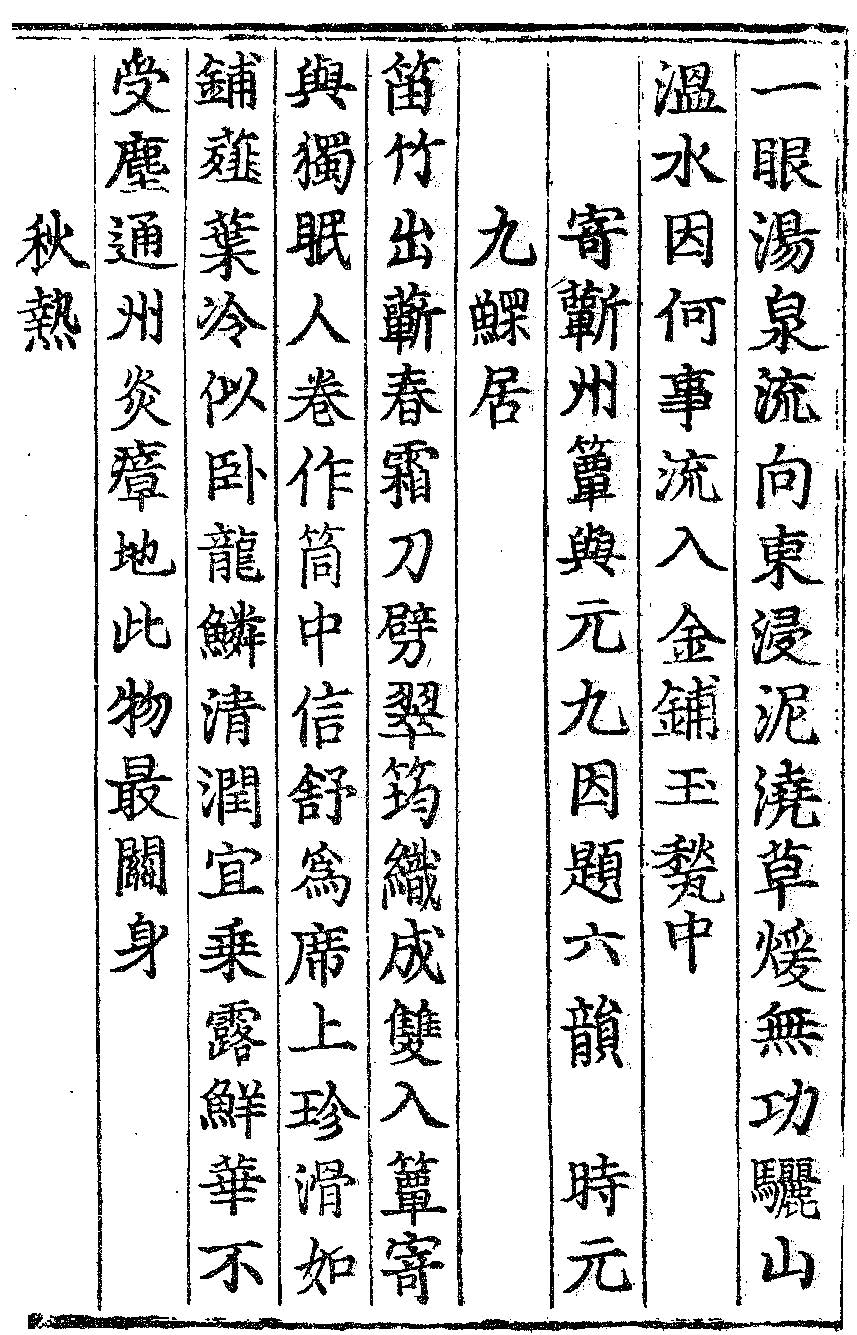 一眼湯泉流向東浸泥澆草煖無功驪山
溫水因何事流入金鋪玉甃中
寄蘄州簟與元九因題六韻　時元
九鰥居
笛竹出蘄春霜刀劈翠筠織成雙入簟寄
與獨眠人卷作筒中信舒為席上珍滑如
鋪薤葉冷似卧龍鱗清潤宜乗露鮮華不
受塵通州炎瘴地此物最關身
秋熱